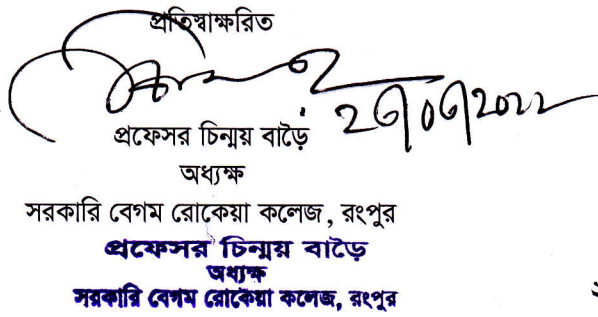 প্রতিস্বাক্ষরিত
প্রফেসর চিন্ময় বাড়ৈ
অধ্যক্ষ
সরকারি বেগম রোকেয়া কলেজ, রংপুর
প্রফেসর চিন্ময় বাড়ৈ
অধ্যক্ষ
সরকারি বেগম রোকেয়া কলেজ, রংপুর